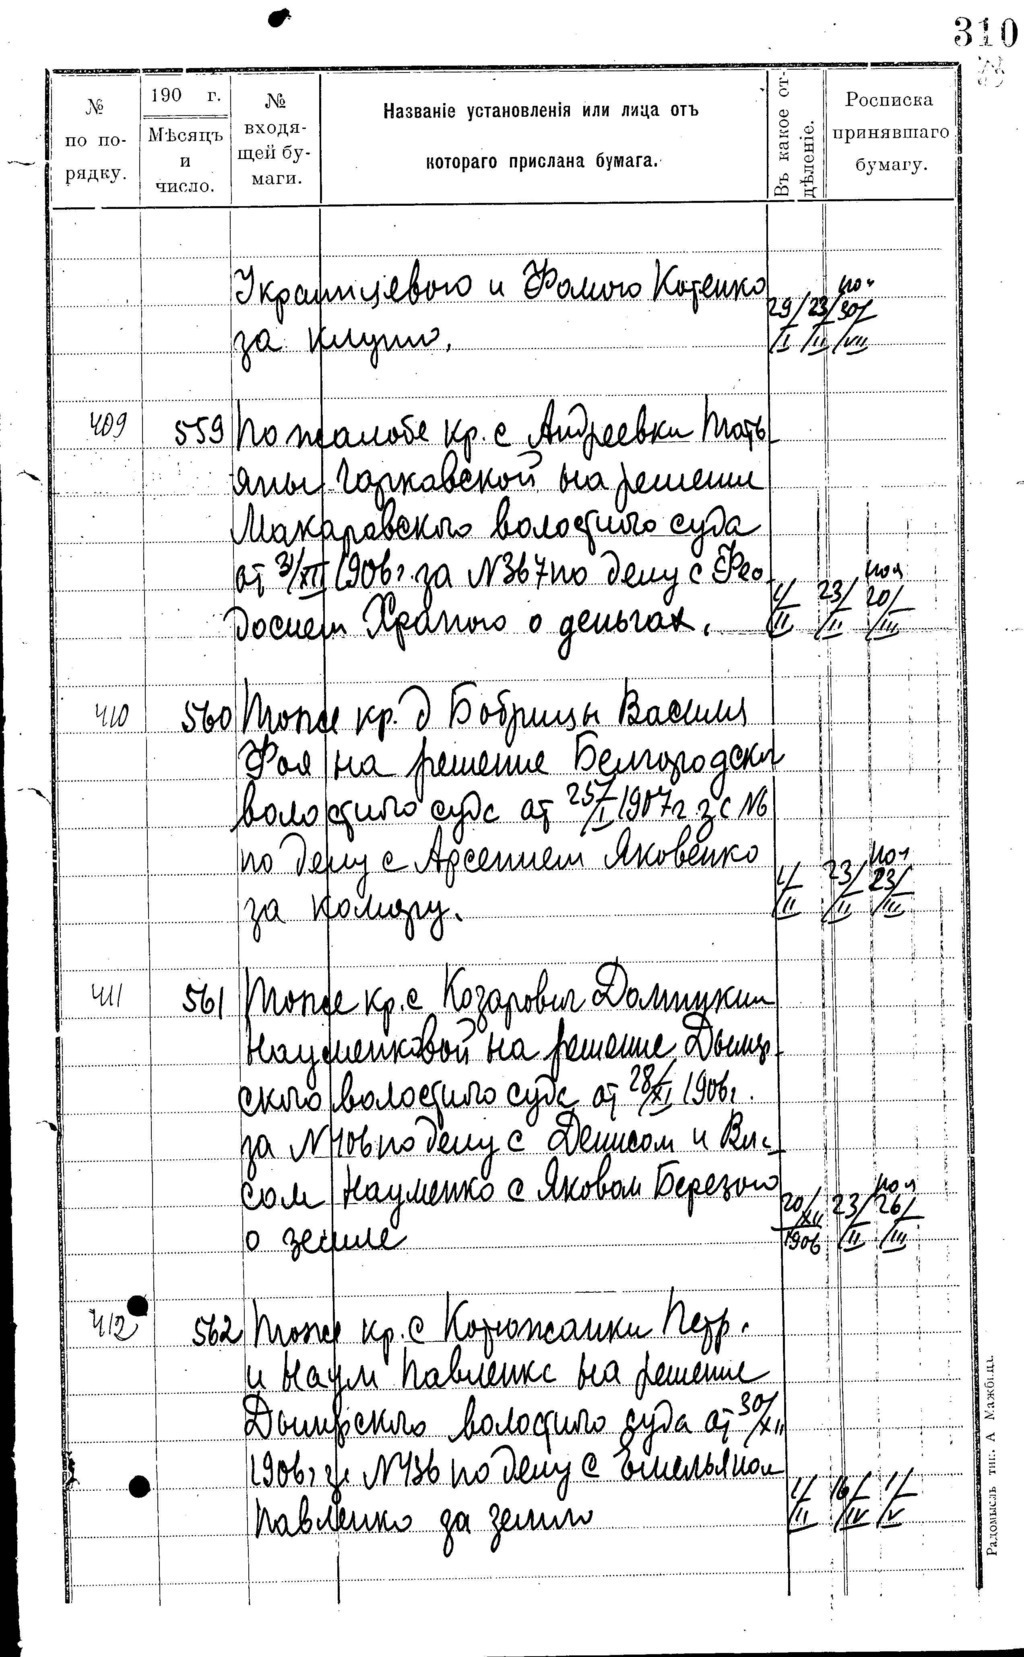 310
№ по порядку.
190 г.
Мѣсяцъ и число.
№ входящей бумаги.
Названіе установленія или лица отъ котораго прислана бумага.
Въ какое отдѣленіе.
Росписка принявшаго бумагу.
и Фомою Котенко
за клуню.
29/I 23/II 30/VII
409 559 По жалобе кр. с Андреевки Тать
яны Гаркавской на решение
Макаровского волостного суда
от 31/XII 1906 г. за N 367 по делу с Фео
досием Храпою о деньгах.
1/II 23/II 20/III
410 560 Тоже кр. д Бобрицы Василия
Фоя на решение Белгородск
волостного суда от 25/I 1907 г за N 6
по делу с Арсением Яковенко
за комору.
1/II 23/II 23/III
411 561 Тоже кр. с Козарович Домникии
Науменковой на решение Дымер
ского волостного суда от 28/XI 1906 г.
за N 406 по делу с Денисом и Вла
сом Науменко с Яковом Березою
о земле
20/XII 1906 23/II 26/III
412 562 Тоже кр. с Котюжанки Петр.
и Наум Павленко на решение
Дымерского волостного суда от 30/XII
1906 г за N 436 по делу с Емельяном
Павленко за землю
1/II 16/IV 1/V
Радомысль тип. А Мажбица.